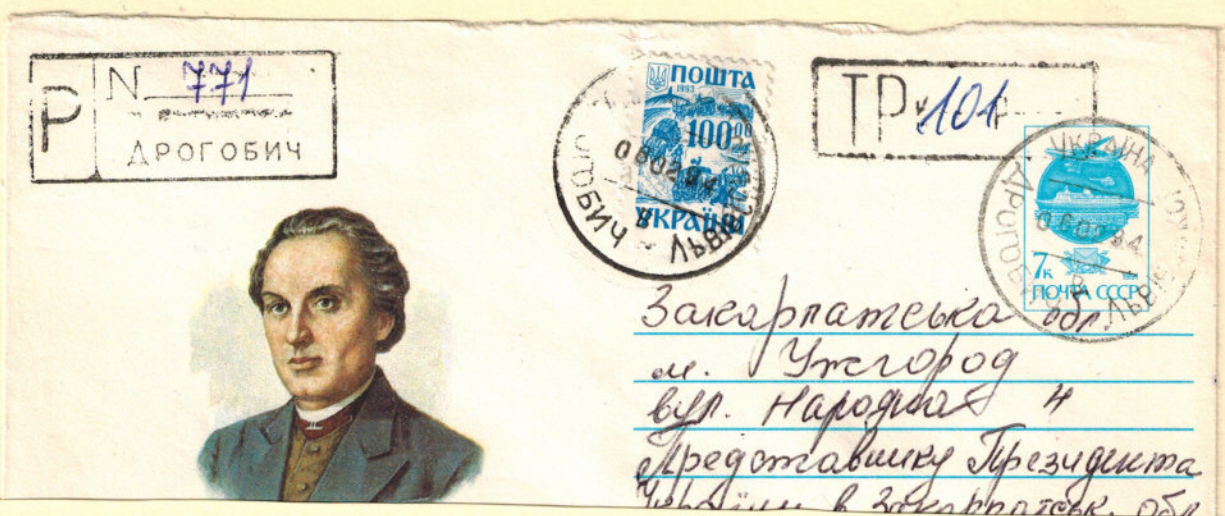 Р N 771
ДРОГОБИЧ
ПОШТА
1993
100.00
УКРАЇНИ
080294
ДРОГОБИЧ ЛЬВІВСЬК
ТР № 101
УКРАЇНА
ДРОГОБИЧ ЛЬВІВ
7к
ПОЧТА СССР
Закарпатська обл.
м. Ужгород
вул. Народна 4
Представнику Президента
України в Закарпатськ. обл